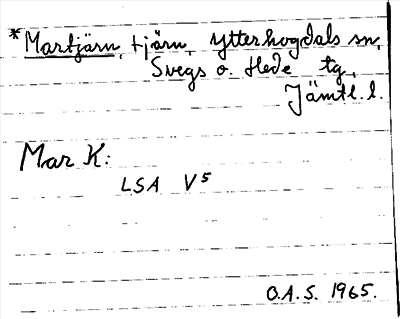 *Martjärn, tjärn, Ytterhogdals sn,
Svegs o. Hede tg,
Jämtl. l.
Mar K:
LSA V5
O.A.S. 1965.